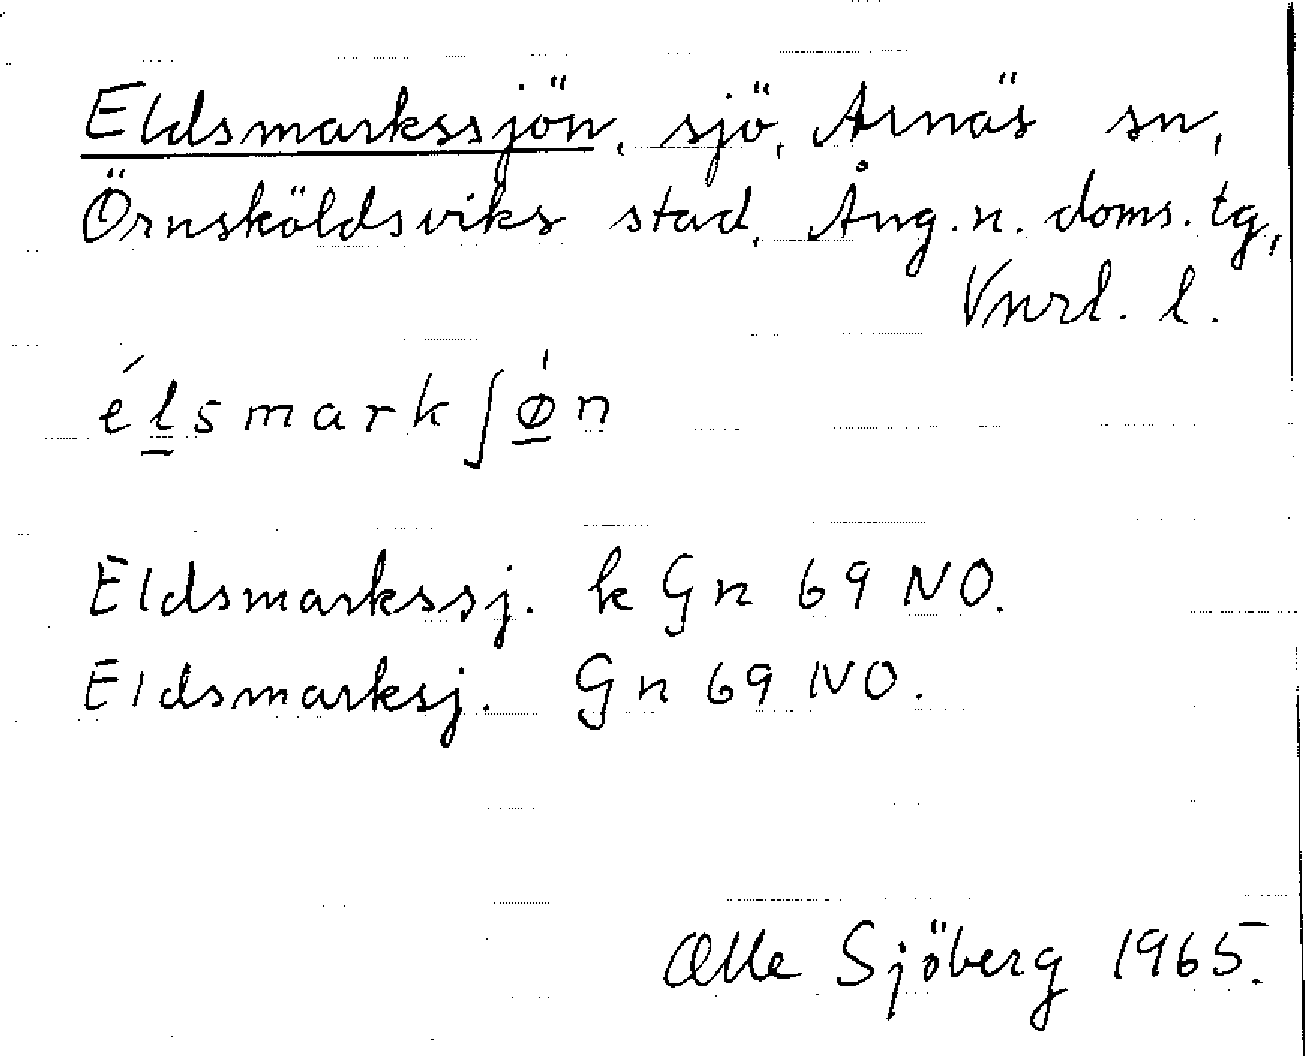 Eldsmarkssjön, sjö, Arnäs sn,
Örnsköldsviks stad, Ång. n. doms. tg,
Vnrl. l.
élsmarkʃǿn
Eldsmarkssj. k Gn 69 NO.
Eldsmarksj. Gn 69 NO.
Olle Sjöberg 1965.